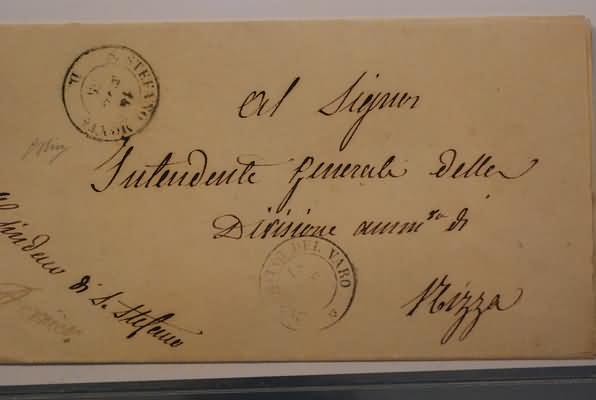 S. STEFANO MONTE
Al Signor
Intendente Generale della
Divisione ammva di
Nizza
DEL VARO
Il Sindaco di S. Stefano